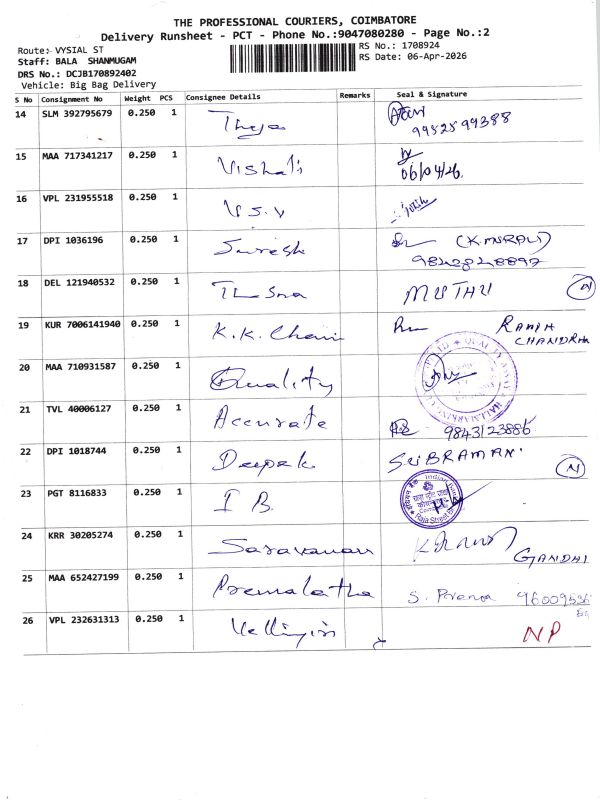 THE PROFESSIONAL COURIERS, COIMBATORE
Delivery Runsheet - PCT - Phone No.:9047080280 - Page No.:2
Route: VYSIAL ST
RS No.: 1708924
Staff: BALA SHANMUGAM
RS Date: 06-Apr-2026
DRS No.: DCJB170892402
Vehicle: Big Bag Delivery
S No Consignment No Weight PCS Consignee Details Remarks Seal & Signature
14 SLM 392795679 0.250 1
9952599388
15 MAA 717341217 0.250 1 Vishali
06/04/26
16 VPL 231955518 0.250 1 V.S.V
17 DPI 1036196 0.250 1 Suresh (K.MURALI)
18 DEL 121940532 0.250 1 MUTHU N
19 KUR 7006141940 0.250 1 K.K. RAMA
CHANDRA
20 MAA 710931587 0.250 1 Quality
21 TVL 40006127 0.250 1 Accurate 9843123886
22 DPI 1018744 0.250 1 Deepak SUBRAMANI N
23 PGT 8116833 0.250 1 I B.
24 KRR 30205274 0.250 1 Saravanan
GANDHI
25 MAA 652427199 0.250 1 Premalatha S.
26 VPL 232631313 0.250 1 NP